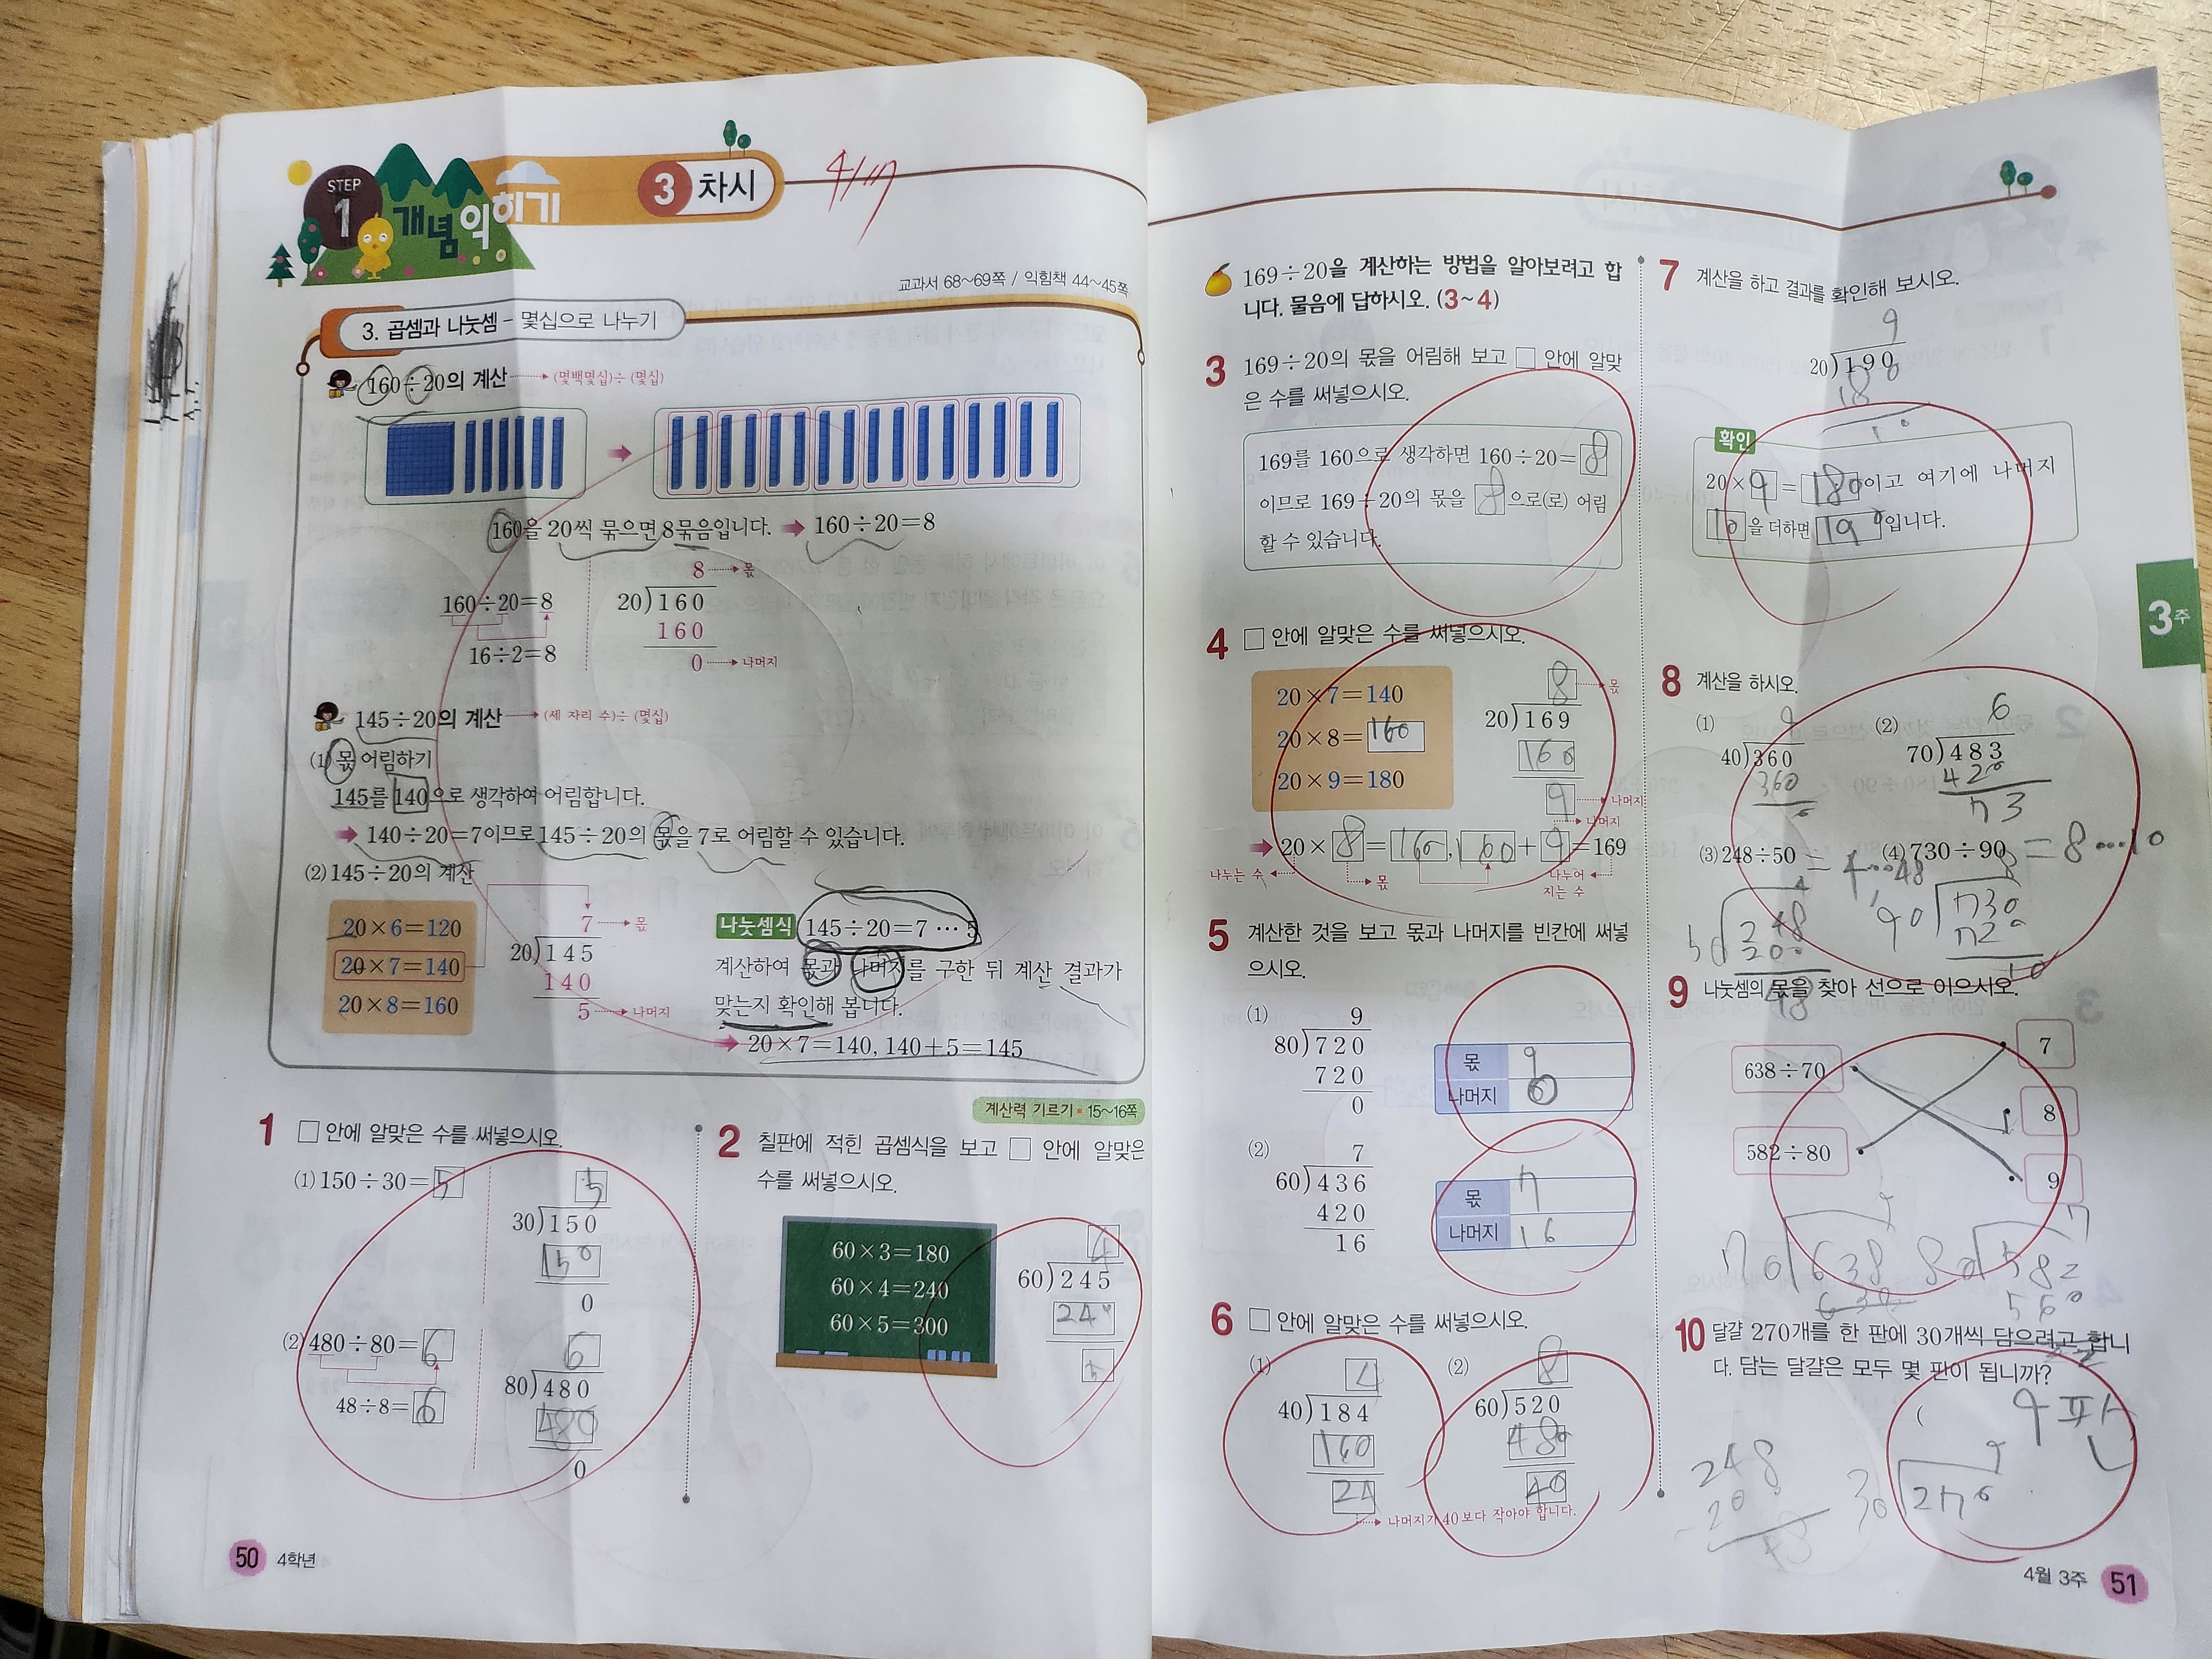 STEP 1
개념 익히기
3 차시
4/17
교과서 68~69쪽 / 익힘책 44~45쪽
3. 곱셈과 나눗셈 - 몇십으로 나누기
160÷20의 계산 (몇백몇십)÷(몇십)
160을 20씩 묶으면 8묶음입니다. 160÷20=8
160÷20=8
16÷2=8
8 몫
20)160
160
0 나머지
145÷20의 계산 (세 자리 수)÷(몇십)
(1) 몫 어림하기
145를 140으로 생각하여 어림합니다.
140÷20=7이므로 145÷20의 몫을 7로 어림할 수 있습니다.
(2) 145÷20의 계산
20×6=120
20×7=140
20×8=160
7 몫
20)145
140
5 나머지
나눗셈식 145÷20=7…5
계산하여 몫과 나머지를 구한 뒤 계산 결과가
맞는지 확인해 봅니다.
20×7=140, 140+5=145
계산력 기르기 15~16쪽
1 □ 안에 알맞은 수를 써넣으시오.
(1) 150÷30=5
5
30)150
150
0
(2) 480÷80=6
48÷8=6
6
80)480
480
0
2 칠판에 적힌 곱셈식을 보고 □ 안에 알맞은
수를 써넣으시오.
60×3=180
60×4=240
60×5=300
4
60)245
240
5
50 4학년
169÷20을 계산하는 방법을 알아보려고 합
니다. 물음에 답하시오. (3~4)
3 169÷20의 몫을 어림해 보고 □ 안에 알맞
은 수를 써넣으시오.
169를 160으로 생각하면 160÷20=8
이므로 169÷20의 몫을 8으로(로) 어림
할 수 있습니다.
4 □ 안에 알맞은 수를 써넣으시오.
20×7=140
20×8=160
20×9=180
8 몫
20)169
160
9 나머지
나머지
20×8=160, 160+9=169
나누는 수 몫 나누어
지는 수
5 계산한 것을 보고 몫과 나머지를 빈칸에 써넣
으시오.
(1)
9
80)720
720
0
몫 9
나머지 0
(2)
7
60)436
420
16
몫 7
나머지 16
6 □ 안에 알맞은 수를 써넣으시오.
(1)
4
40)184
160
24
나머지가 40보다 작아야 합니다.
(2)
8
60)520
480
40
7 계산을 하고 결과를 확인해 보시오.
9
20)190
180
10
확인
20×9=180이고 여기에 나머지
10을 더하면 190입니다.
8 계산을 하시오.
(1)
9
40)360
360
0
(2)
6
70)483
420
73
(3) 248÷50 = 4…48
4
50)248
200
48
(4) 730÷90 = 8…10
8
90)730
720
10
9 나눗셈의 몫을 찾아 선으로 이으시오.
638÷70
582÷80
7
8
9
9
70)638
630
7
80)582
560
22
10 달걀 270개를 한 판에 30개씩 담으려고 합니
다. 담는 달걀은 모두 몇 판이 됩니까?
9판
9
30)270
248
200
48
3주
4월 3주 51